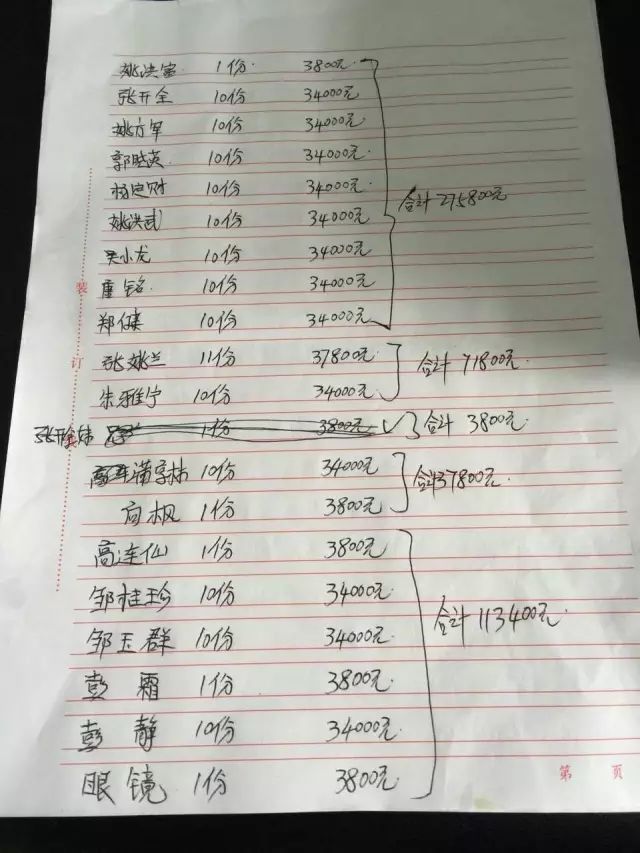 姚洪宝 1份 3800元
张开全 10份 34000元
姚方军 10份 34000元
郭晓英 10份 34000元
杨定财 10份 34000元
姚洪武 10份 34000元 合计 275800元
吴小龙 10份 34000元
唐铭 10份 34000元
郑健 10份 34000元
张姚兰 11份 37800元 合计 71800元
朱雅宁 10份 34000元
张开 1份 3800元 合计 3800元
10份 34000元 合计 37800元
向枫 1份 3800元
高连仙 1份 3800元
邹桂珍 10份 34000元
邹玉群 10份 34000元 合计 113400元
彭霜 1份 3800元
彭静 10份 34000元
眼镜 1份 3800元
装
订
第 页